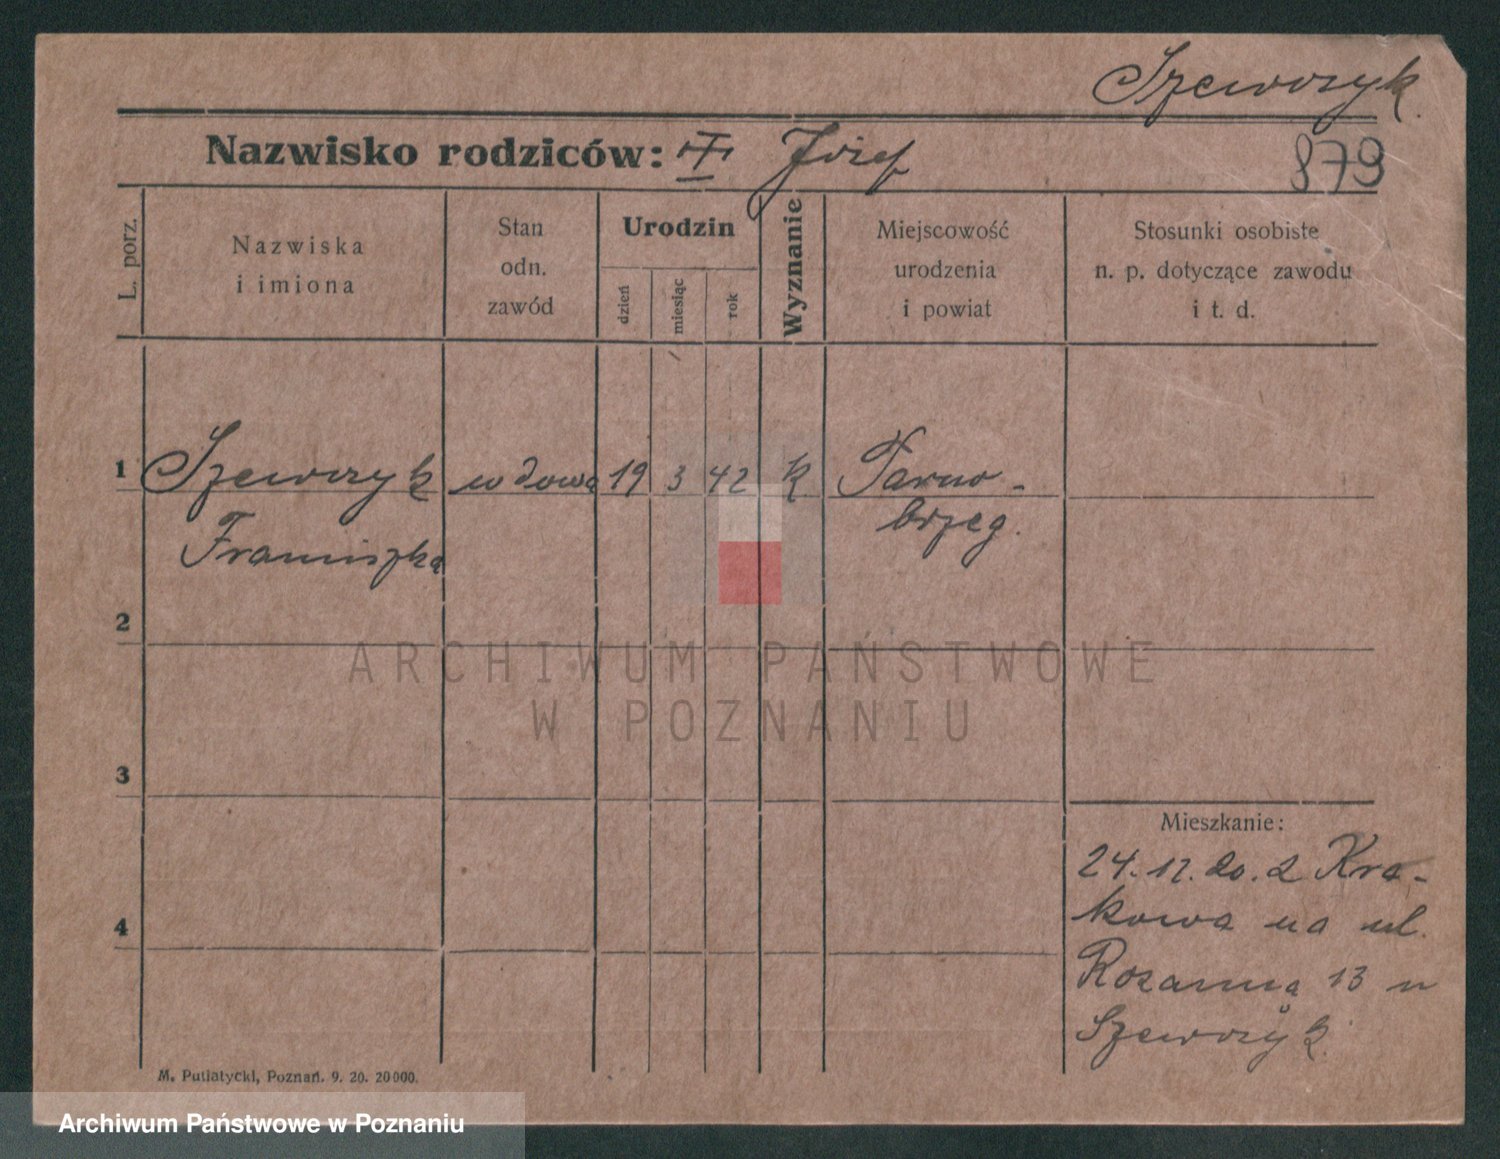 Szewczyk
Nazwisko rodziców: Józef
879
L. porz.
Nazwiska
i imiona
Stan
odn.
zawód
Urodzin
dzień
miesiąc
rok
Wyznanie
Miejscowość
urodzenia
i powiat
Stosunki osobiste
n. p. dotyczące zawodu
i t. d.
1 Szewczyk wdowa 19 3 42 k Tarno-
Franciszka brzeg.
2
ARCHIWUM PAŃSTWOWE
W POZNANIU
3
Mieszkanie:
24.12.20. z Kra-
kowa na ul.
4
Różanną 13 u
Szewczyk
M. Putiatycki, Poznań. 9. 20. 20000.
Archiwum Państwowe w Poznaniu